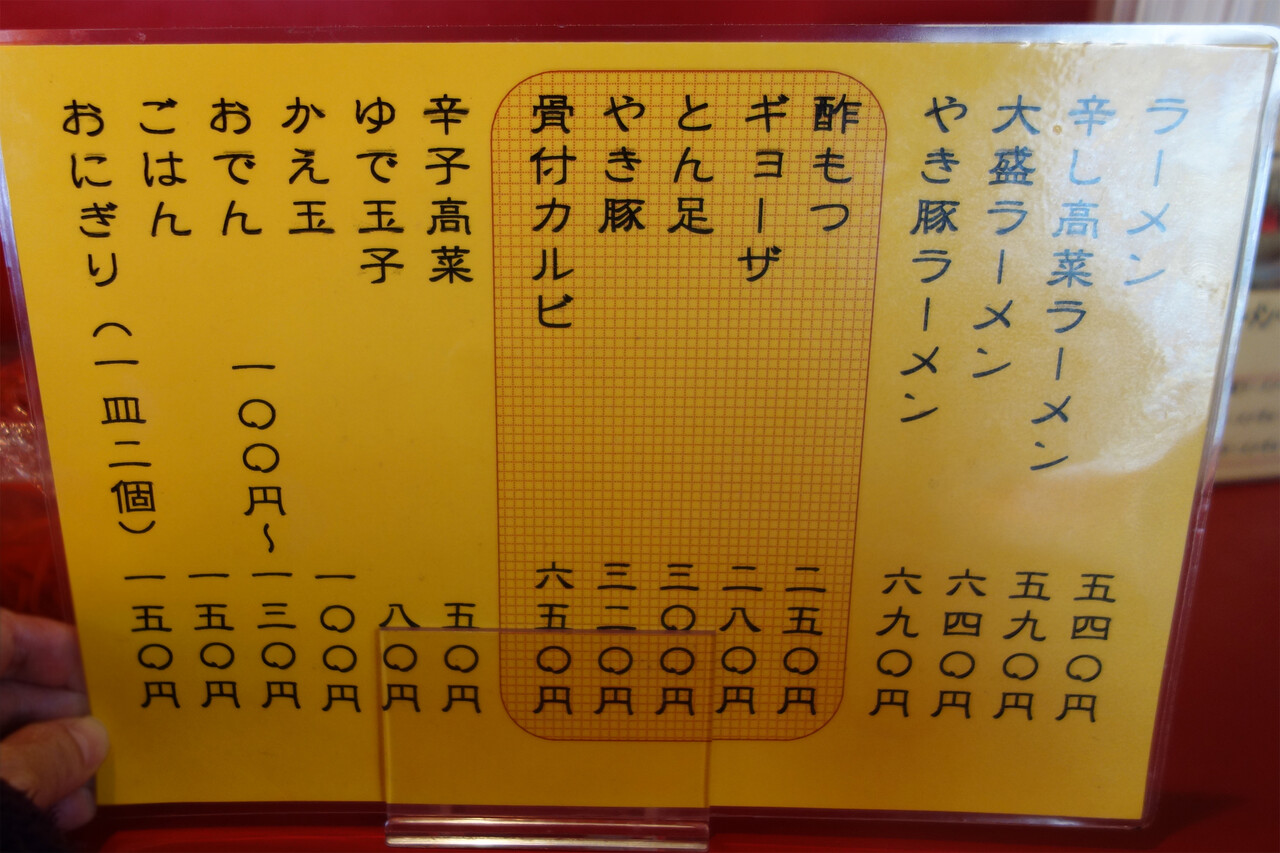 ラーメン 五四〇円
辛し高菜ラーメン 五九〇円
大盛ラーメン 六四〇円
やき豚ラーメン 六九〇円
酢もつ 二五〇円
ギヨーザ 二八〇円
とん足 三〇〇円
やき豚 三二〇円
骨付カルビ 六五〇円
辛子高菜 五〇円
ゆで玉子 八〇円
かえ玉 一〇〇円
おでん 一〇〇円～一三〇円
ごはん 一五〇円
おにぎり（一皿二個） 一五〇円